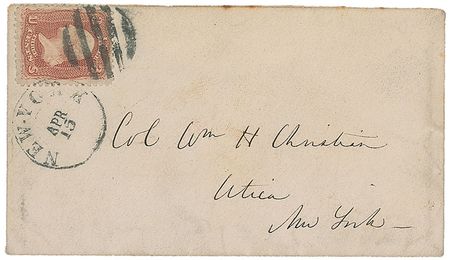 NEW-YORK
APR
15
Col Wm H Christian
Utica
New York